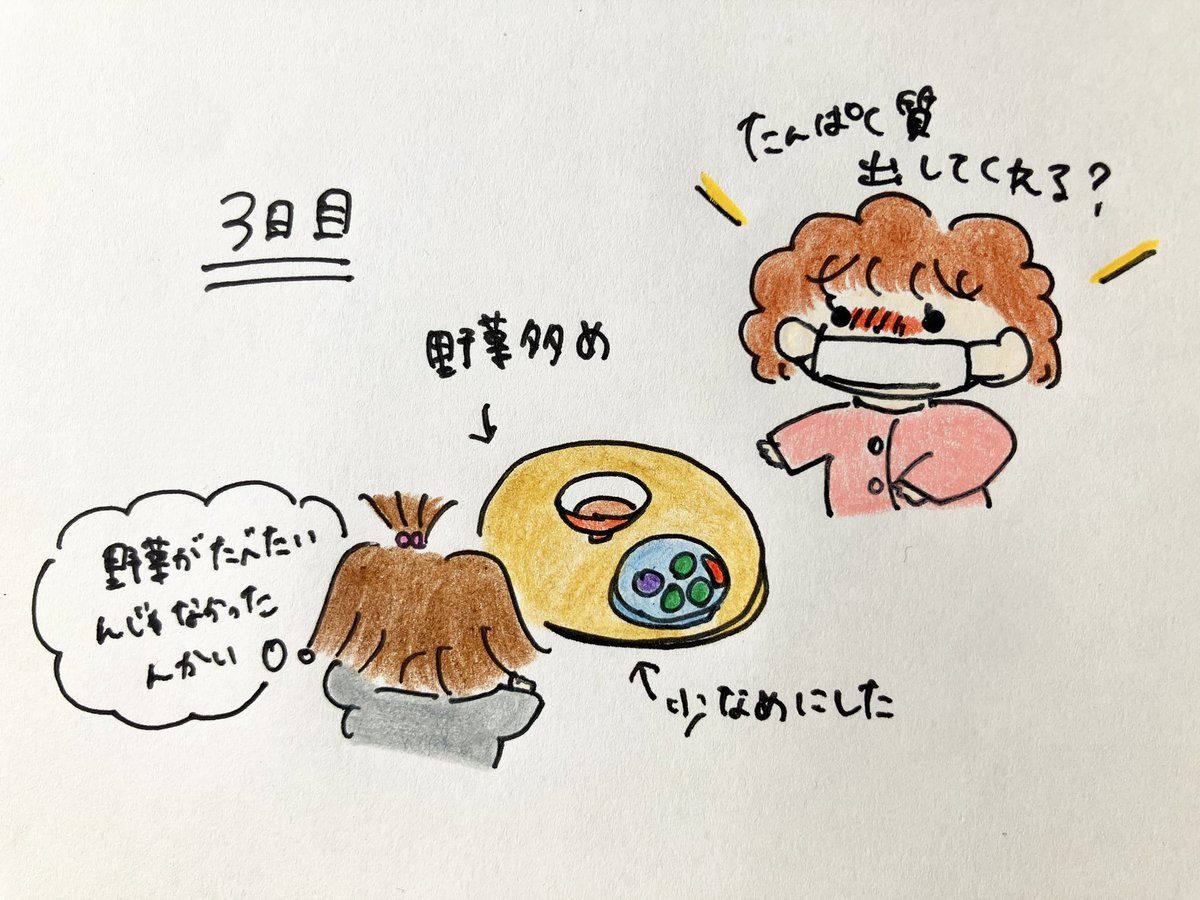 3日目
たんぱく質
出してくれる?
野菜多め
野菜がたべたい
んじゃなかった
んかい
少なめにした